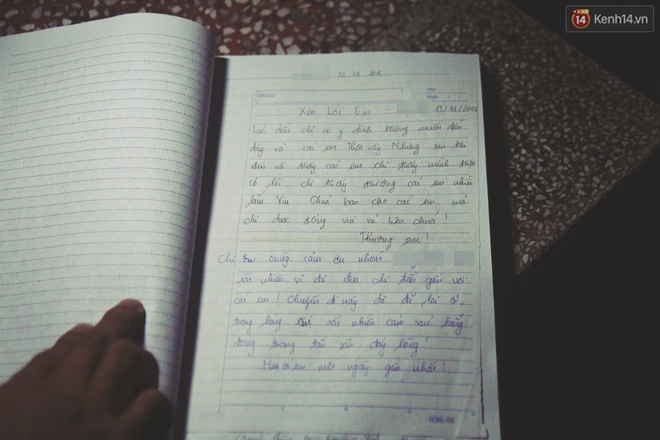 Kenh14.vn
Xin Lỗi Em
13/11/2016
Lúc đầu chị có ý định không muốn đến
đây và các em Thật vậy Nhưng sau khi
đến và thấy các em chị thấy mình thật
có lỗi chị thấy thương các em nhiều
lắm Xin Chúa ban cho các em của
chị được sống vui vẻ bên chúa!
Thương em!
Chị Em cũng cảm ơn nhóm
rất nhiều vì đã đưa chị đến gần với
các em! Chuyến đi này đã để lại
trong lòng chị rất nhiều cảm xúc lắng
đọng trong tận sâu đáy lòng!
Hẹn các em một ngày gần nhất!
HONG HA